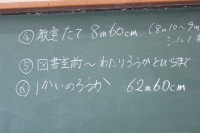 ④ 教室たて 8m60cm (8m10~9m
⑤ 図書室前~わたりろうかといちまで
⑥ 1かいのろうか 62m60cm